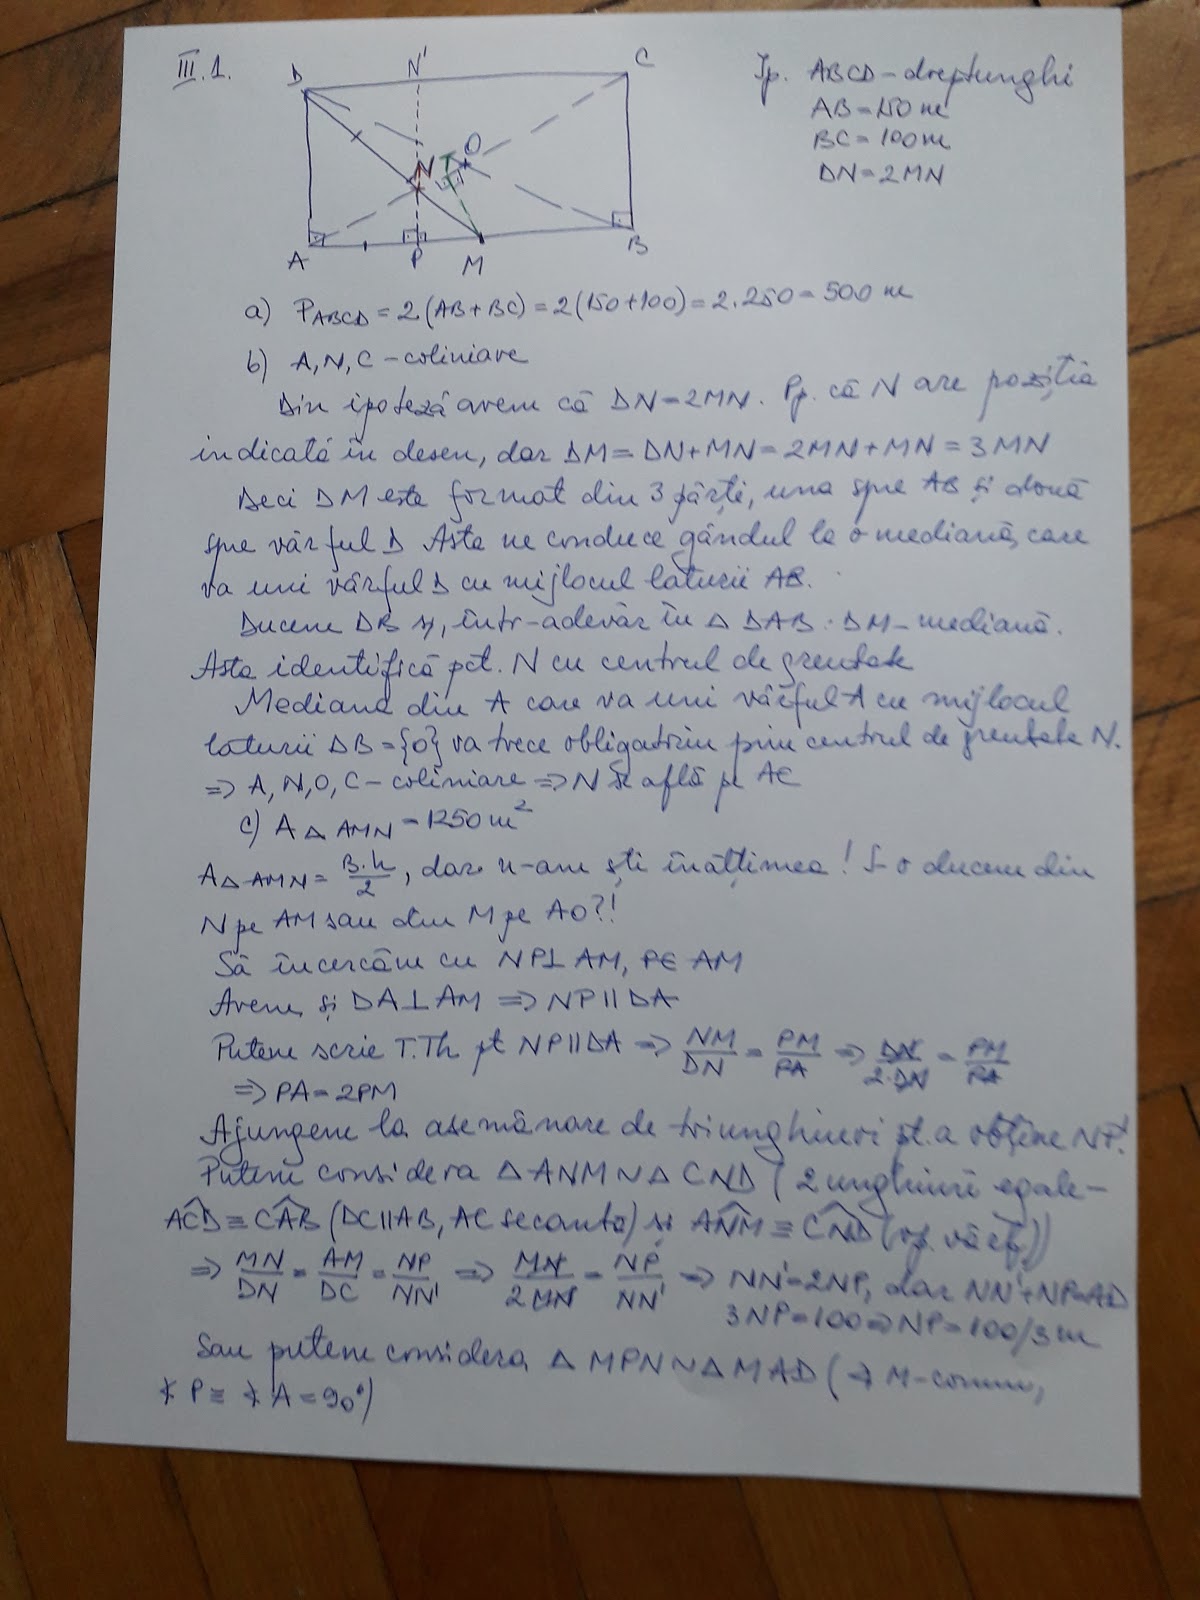 III.1.
D N' C
N O
A P M B
Ip. ABCD - dreptunghi
AB = 150 m
BC = 100 m
DN = 2MN
a) P_ABCD = 2(AB+BC) = 2(150+100) = 2·250 = 500 m
b) A, N, C - coliniare
Din ipoteză avem că DN = 2MN. Pp. că N are poziția
indicată în desen, dar DM = DN+MN = 2MN+MN = 3MN
Deci DM este format din 3 părți, una spre AB și două
spre vârful D Asta ne conduce gândul la o mediană, care
va uni vârful D cu mijlocul laturii AB.
Ducem DB și, într-adevăr în △ DAB · DM - mediană.
Asta identifică pct. N cu centrul de greutate
Mediana din A care va uni vârful A cu mijlocul
laturii DB = {O} va trece obligatoriu prin centrul de greutate N.
⇒ A, N, O, C - coliniare ⇒ N se află pe AC
c) A_△AMN = 1250 m²
A_△AMN = B·h/2, dar n-am ști înălțimea! S-o ducem din
N pe AM sau din M pe AO?!
Să încercăm cu NP⊥AM, P∈AM
Avem și DA⊥AM ⇒ NP∥DA
Putem scrie T.Th pt NP∥DA ⇒ NM/DN = PM/PA ⇒ DN/2·DN = PM/PA
⇒ PA = 2PM
Ajungem la asemănare de triunghiuri pt. a obține NP.
Putem considera △ANM ∼ △CND (2 unghiuri egale -
ACD ≡ CAB (DC∥AB, AC secantă) și ANM ≡ CND (op. vârf))
⇒ MN/DN = AM/DC = NP/NN' ⇒ MN/2MN = NP/NN' ⇒ NN' = 2NP, dar NN'+NP=AD
3NP = 100 ⇒ NP = 100/3 m
Sau putem considera △ MPN ∼ △ MAD (∢ M - comun,
∢ P ≡ ∢ A = 90°)